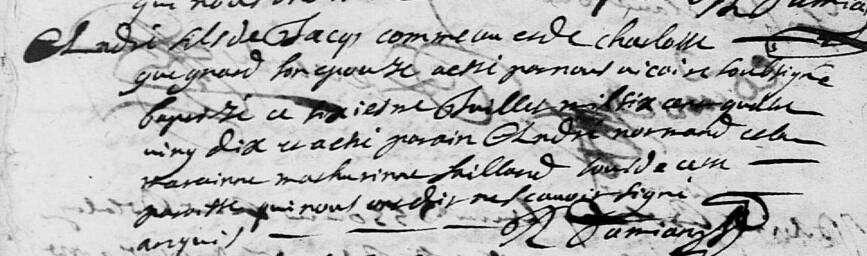 qui nous
André fils de Jacqs commeau et de Charlotte
guegnard son epouze a esté par nous vicaire soubsigné
baptizé ce sixiesme Juillet mil six cens quattre
vingt dix et a esté parain André normand et la
marainne mathurinne faillard tous de cette
paroisse qui nous ont dit ne scavoir signé
anquis
R Damiang